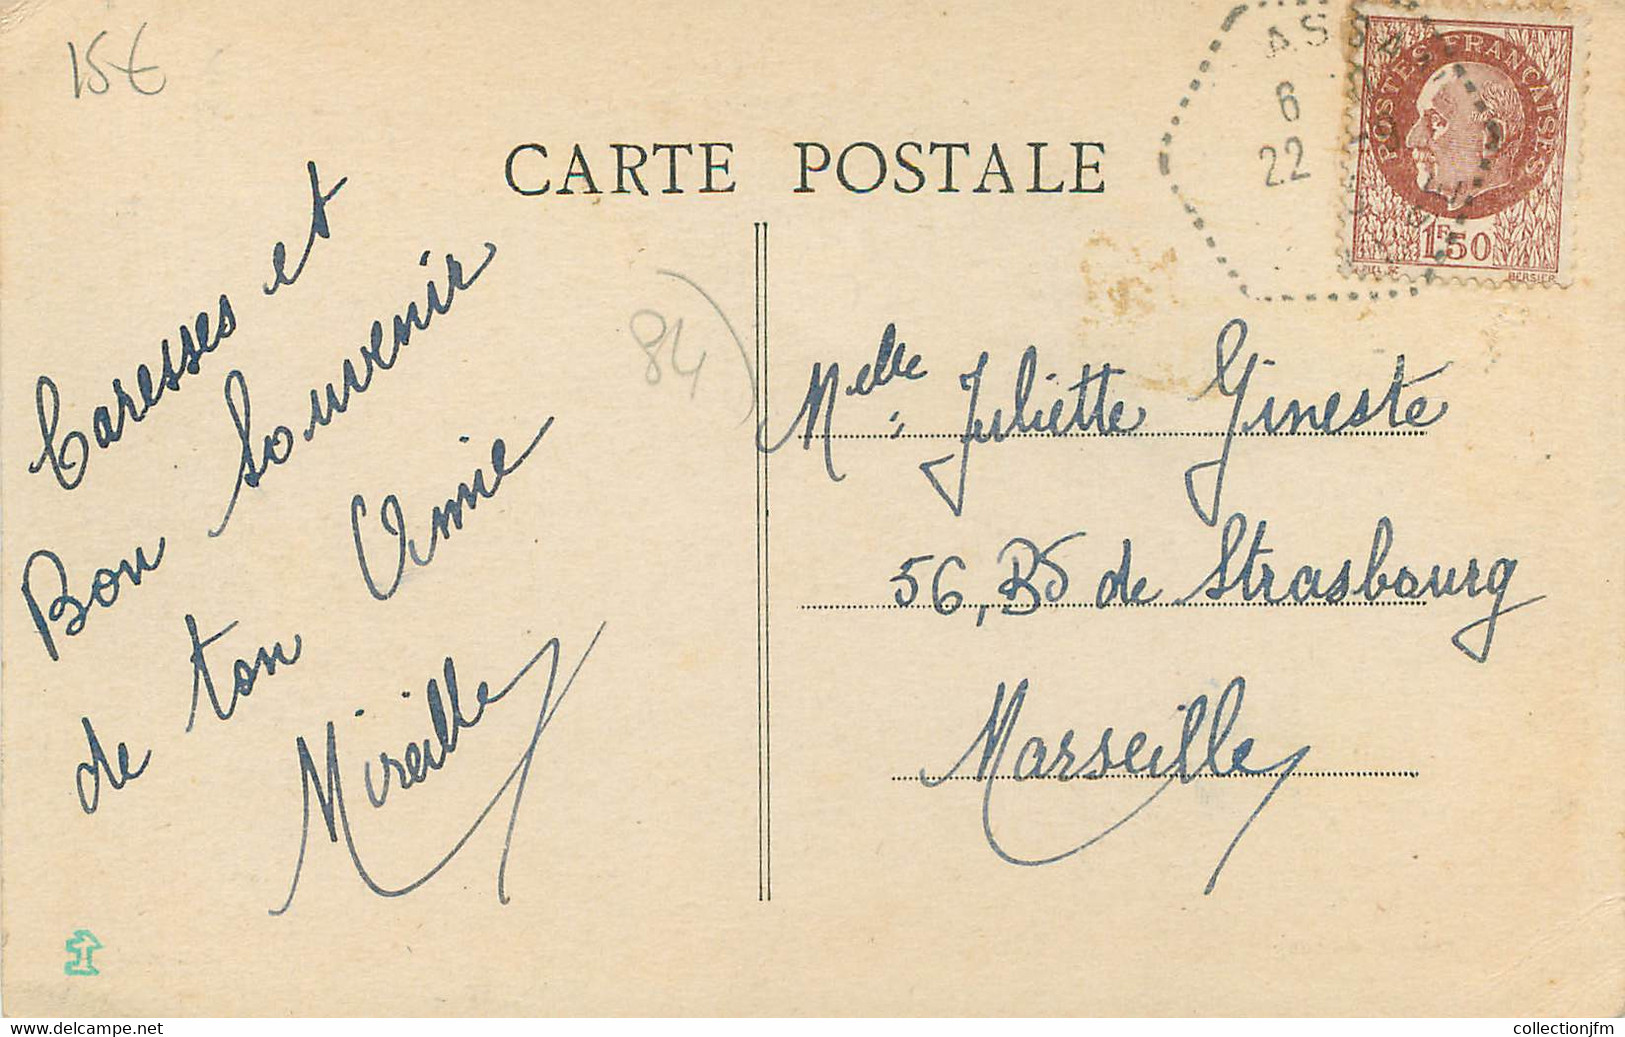 15€
CARTE POSTALE
POSTES FRANÇAISES
1F50
BERSIER
6
22
84
Caresses et
Bon Souvenir
de ton Amie
Mireille
Melle Juliette Gineste
56, Bd de Strasbourg
Marseille
www.delcampe.net
collectionjfm